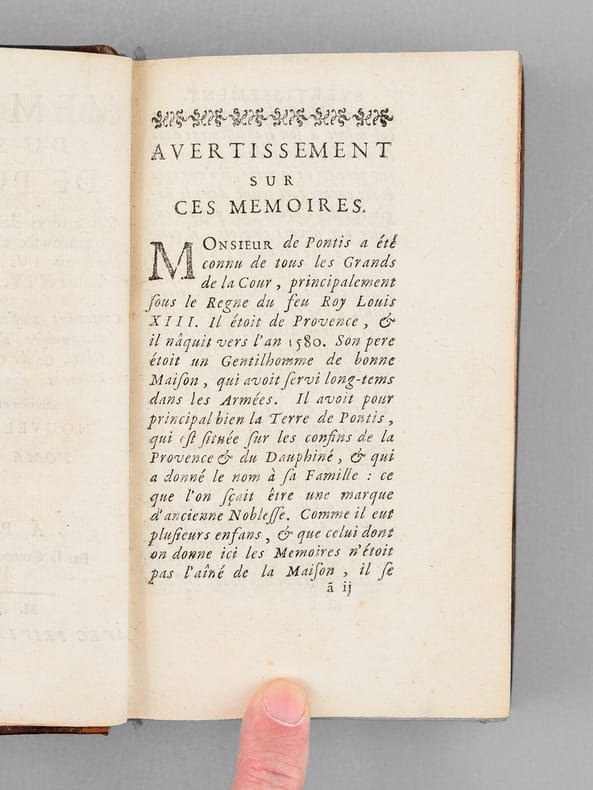 AVERTISSEMENT
SUR
CES MEMOIRES.
MONSIEUR de Pontis a été
connu de tous les Grands
de la Cour, principalement
ſous le Regne du feu Roy Louis
XIII. Il étoit de Provence, &
il nâquit vers l'an 1580. Son pere
étoit un Gentilhomme de bonne
Maiſon, qui avoit ſervi long-tems
dans les Armées. Il avoit pour
principal bien la Terre de Pontis,
qui eſt ſituée ſur les confins de la
Provence & du Dauphiné, & qui
a donné le nom à ſa Famille : ce
que l'on ſçait être une marque
d'ancienne Nobleſſe. Comme il eut
pluſieurs enfans, & que celui dont
on donne ici les Memoires n'étoit
pas l'aîné de la Maiſon, il ſe
ã ij